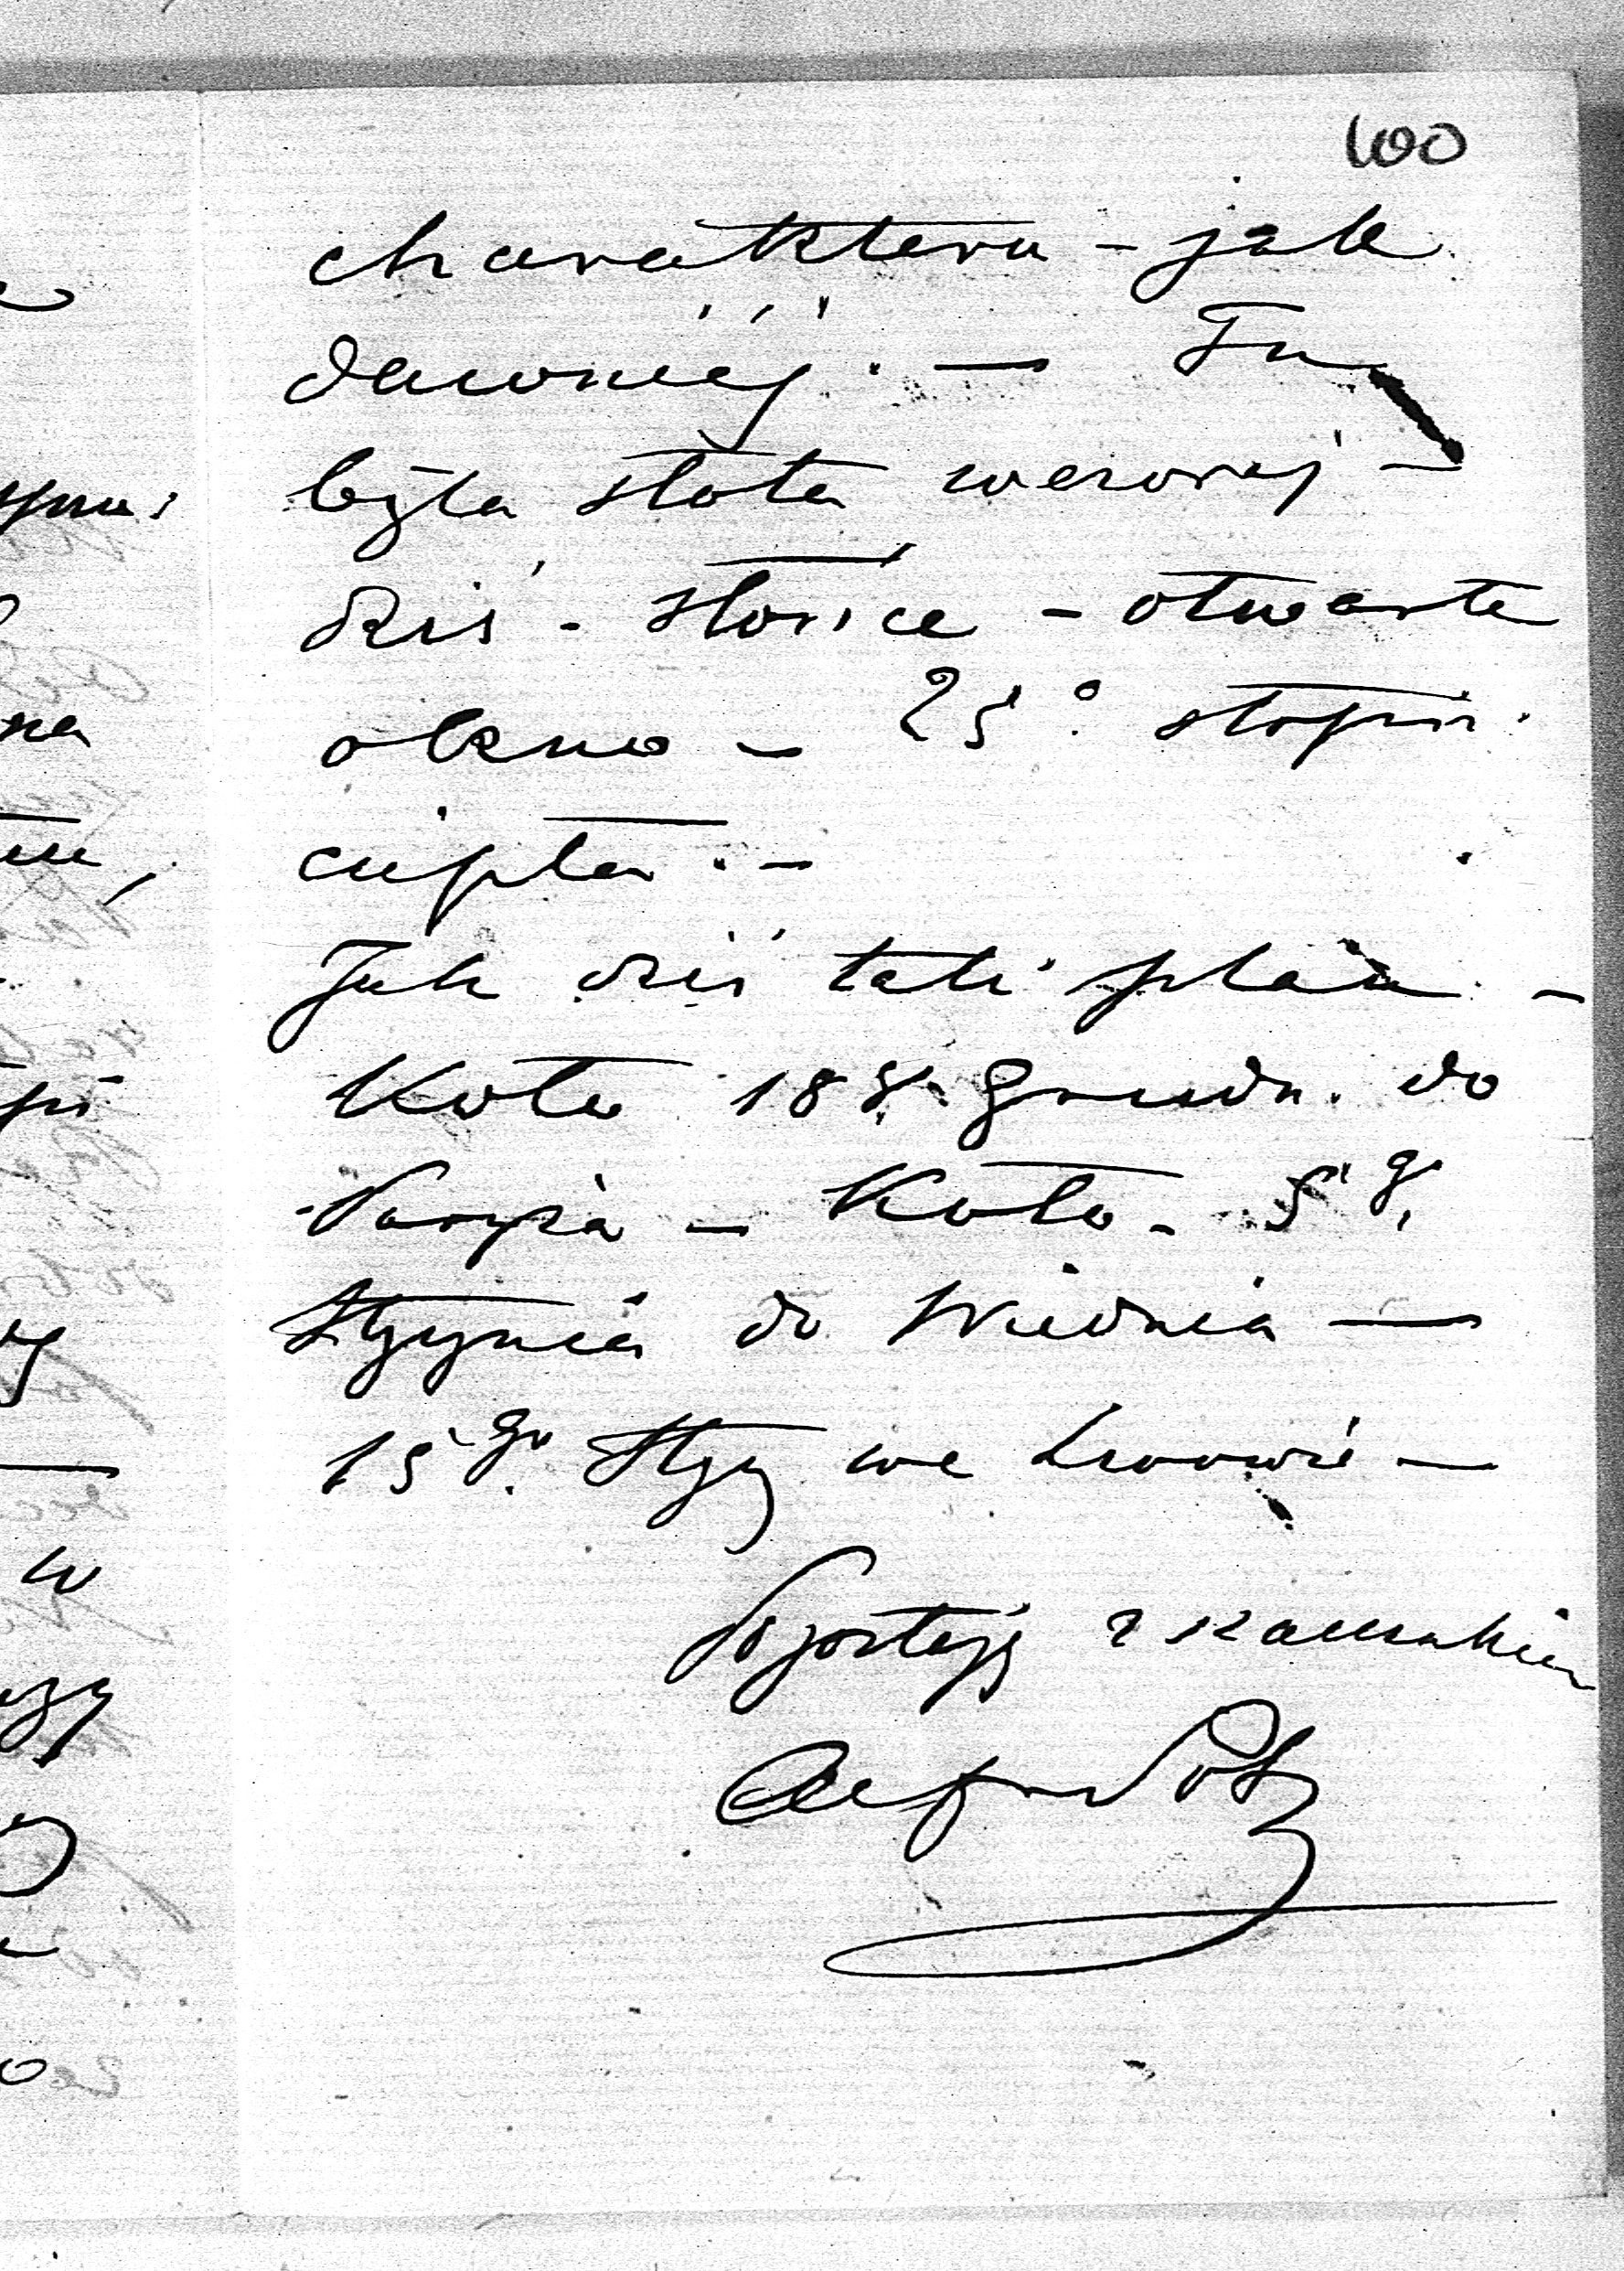 100
charakteru - jak
dawniéj. — Tu
była słota wczoraj —
dziś - słońce - otwarte
okno — 25° stopni
ciepła. —
Jak dziś taki plan —
Koło 18 Grudn. do
Paryża — Koło - 5 go
Stycznia do Wiednia —
15 go Stycz we Lwowie —
Pozostaję z szacunkiem
Alfred Potocki